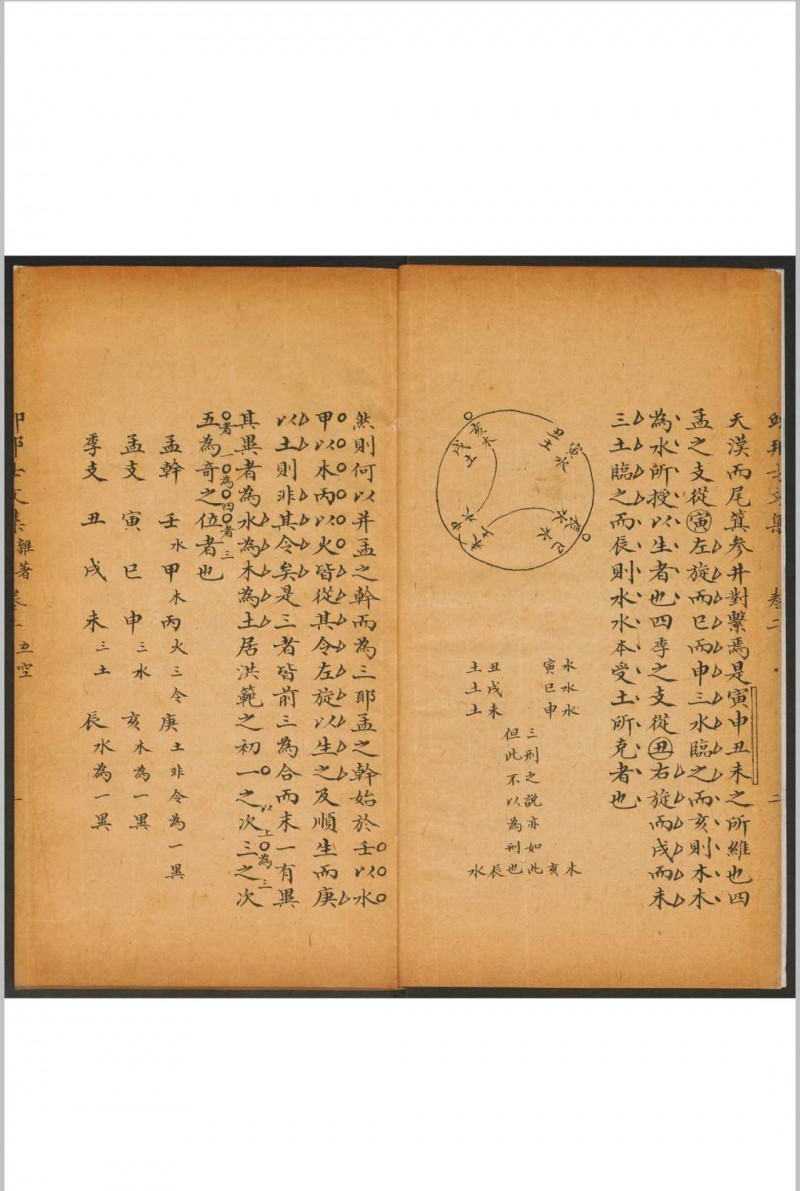 天漢而尾箕參井對繫焉是寅申丑未之所維也四
孟之支從寅左旋而巳而申三水臨之而亥則木木
為水所授以生者也四季之支從丑右旋而戌而未
三土臨之而辰則水水本受土所克者也
丑土
寅水
亥木
戌土
巳水
水水水
寅巳申
丑戌未
土土土
三刑之說亦如此
但此不以為刑也
亥木
辰水
卷二
二
然則何以并孟之幹而為三耶孟之幹始於壬以水
甲以木丙以火皆從其令左旋以生之及順生而庚
以土則非其令矣是三者皆前三為合而末一有異
其異者為水為木為土居洪範之初一之次三之次
五為奇之位者也
孟幹 壬水 甲木 丙火三令 庚土非令為一異
孟支 寅 巳 申三水 亥木為一異
季支 丑 戌 未三土 辰水為一異
文集 雜著 五空